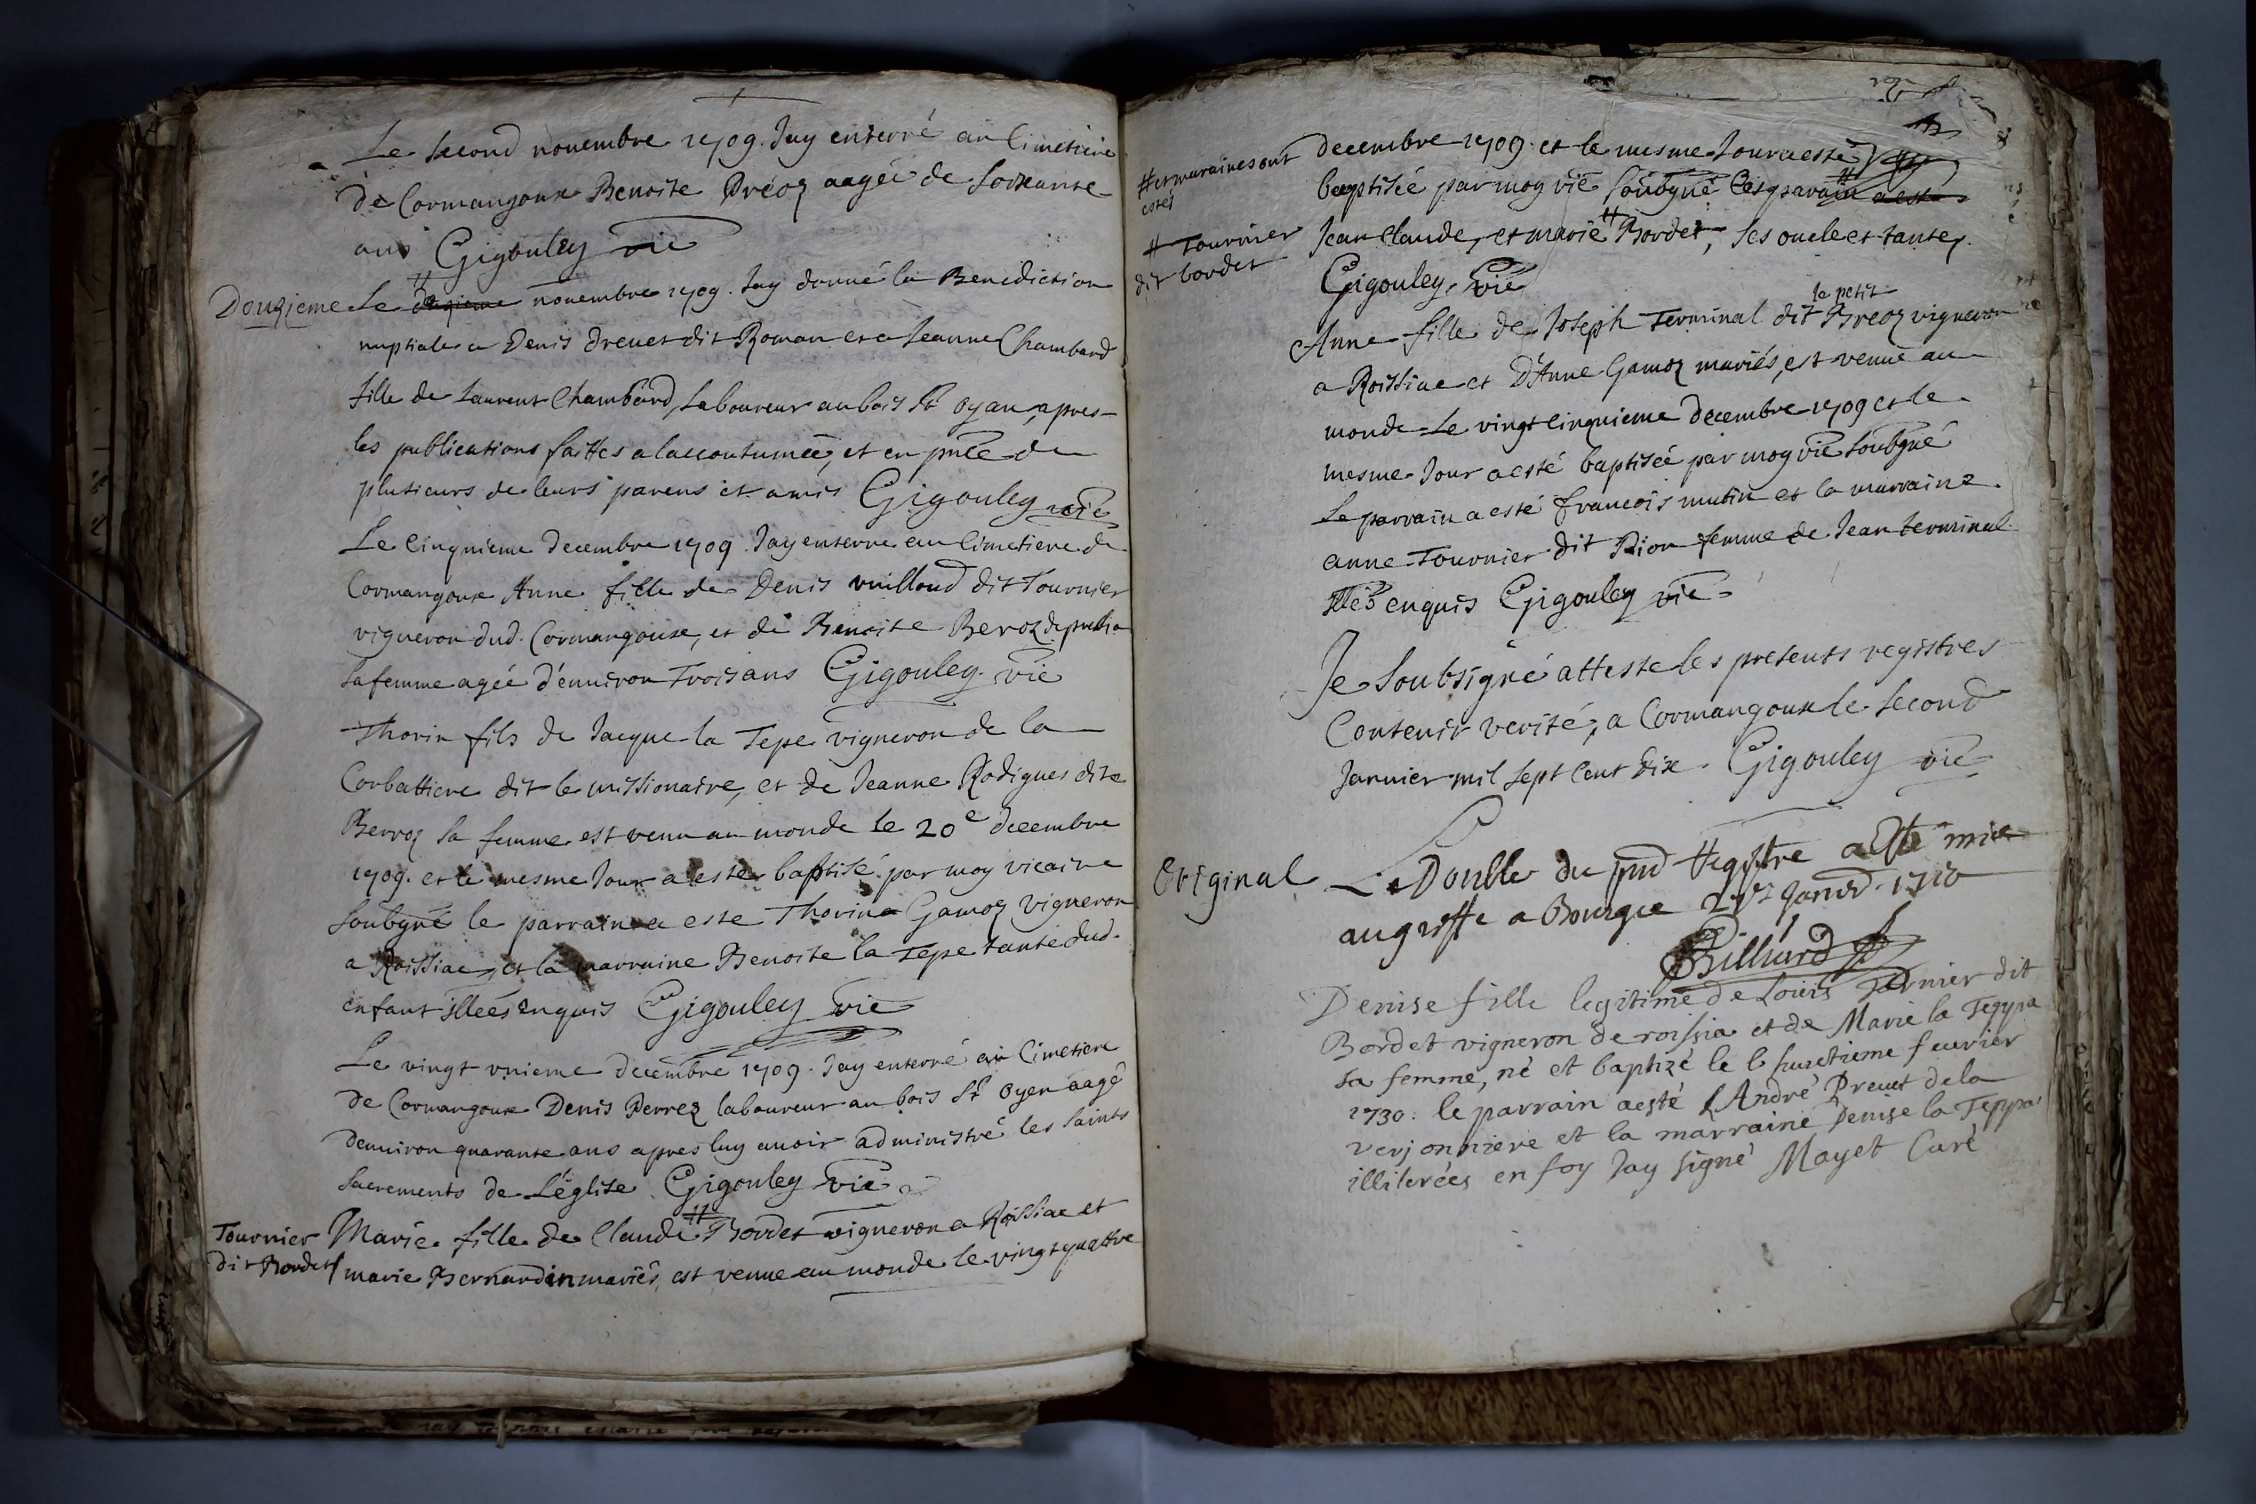 Le second novembre 1709. Jay enterré au Cimetiere
de Cormangoux Benoite Préoz aagée de soixante
ans Gigouley vic
Douzieme Le # novembre 1709. Jay donné la Benediction
nuptiale a Denis Drevet dit Roman et a Jeanne Chambard
fille de Laurent Chambard, Laboureur au bois St Oyan, apres
les publications faittes a laccoutumée, et en pnce de
plusieurs de leurs parens et amis Gigouley vic
Le Cinquieme decembre 1709. Jay enterré au Cimetiere de
Cormangoux Anne fille de Denis vuilloud dit Tournier
vigneron dud. Cormangoux, et de Benoite Beroz
sa femme agée d'environ Trois ans Gigouley vic
Thorin fils de Jacque la Tepe vigneron de la
Corbattiere dit le missionaire, et de Jeanne Rodigues dite
Berroz sa femme est venu au monde le 20e decembre
1709. et le mesme Jour a esté baptisé par moy vicaire
soubgné le parrain a esté Thorin Gamoz vigneron
a Roissiac, et la marraine Benoite la Tepe tante dud.
enfant illés enquis Gigouley vic
Le vingt unieme decembre 1709. Jay enterré au Cimetiere
de Cormangoux Denis Perrez laboureur au bois St Oyen aagé
denviron quarante ans apres luy avoir administré les saints
sacrements de L'église Gigouley vic
Tournier Marie fille de Claude # Bordet vigneron a Roissiac et
dit Bordet marie Bernardin mariés, est venue au monde le vingt quattre
# et maraines ont
estés
# Tournier
dit bordet
decembre 1709. et le mesme Jour a esté
baptisée par moy vic soubgné Les parain # a esté
Jean Claude, et marie # Bordet, ses oncle et tante,
Gigouley, vic
le petit
Anne fille de Joseph Terminal dit Breoz vigneron
a Roissiac et D'Anne Gamoz mariés, est venue au
monde Le vingt cinquieme decembre 1709 et le
mesme Jour a esté baptisée par moy vic soubgné
Le parrain a esté francois mutin et la marraine
anne Tournier dit Rion femme de Jean terminal
illés enquis Gigouley vic
Je soubsigné atteste les presents registres
Contenir verité, a Cormangoux le second
Janvier mil sept cent dix. Gigouley vic
Original Le Double du pnt Registre a esté mis
au greffe a Bourg ce Janvr 1710
Billiard
Denise fille legitime de Loüis Tornier dit
Bordet vigneron de roissia et de Marie la Teppa
sa femme, né et baptizé le huictieme fevrier
1730. le parrain a esté André Drevet de la
verjonniere et la marraine Denise la Teppa
illiterées en foy Jay signé Mayet Curé